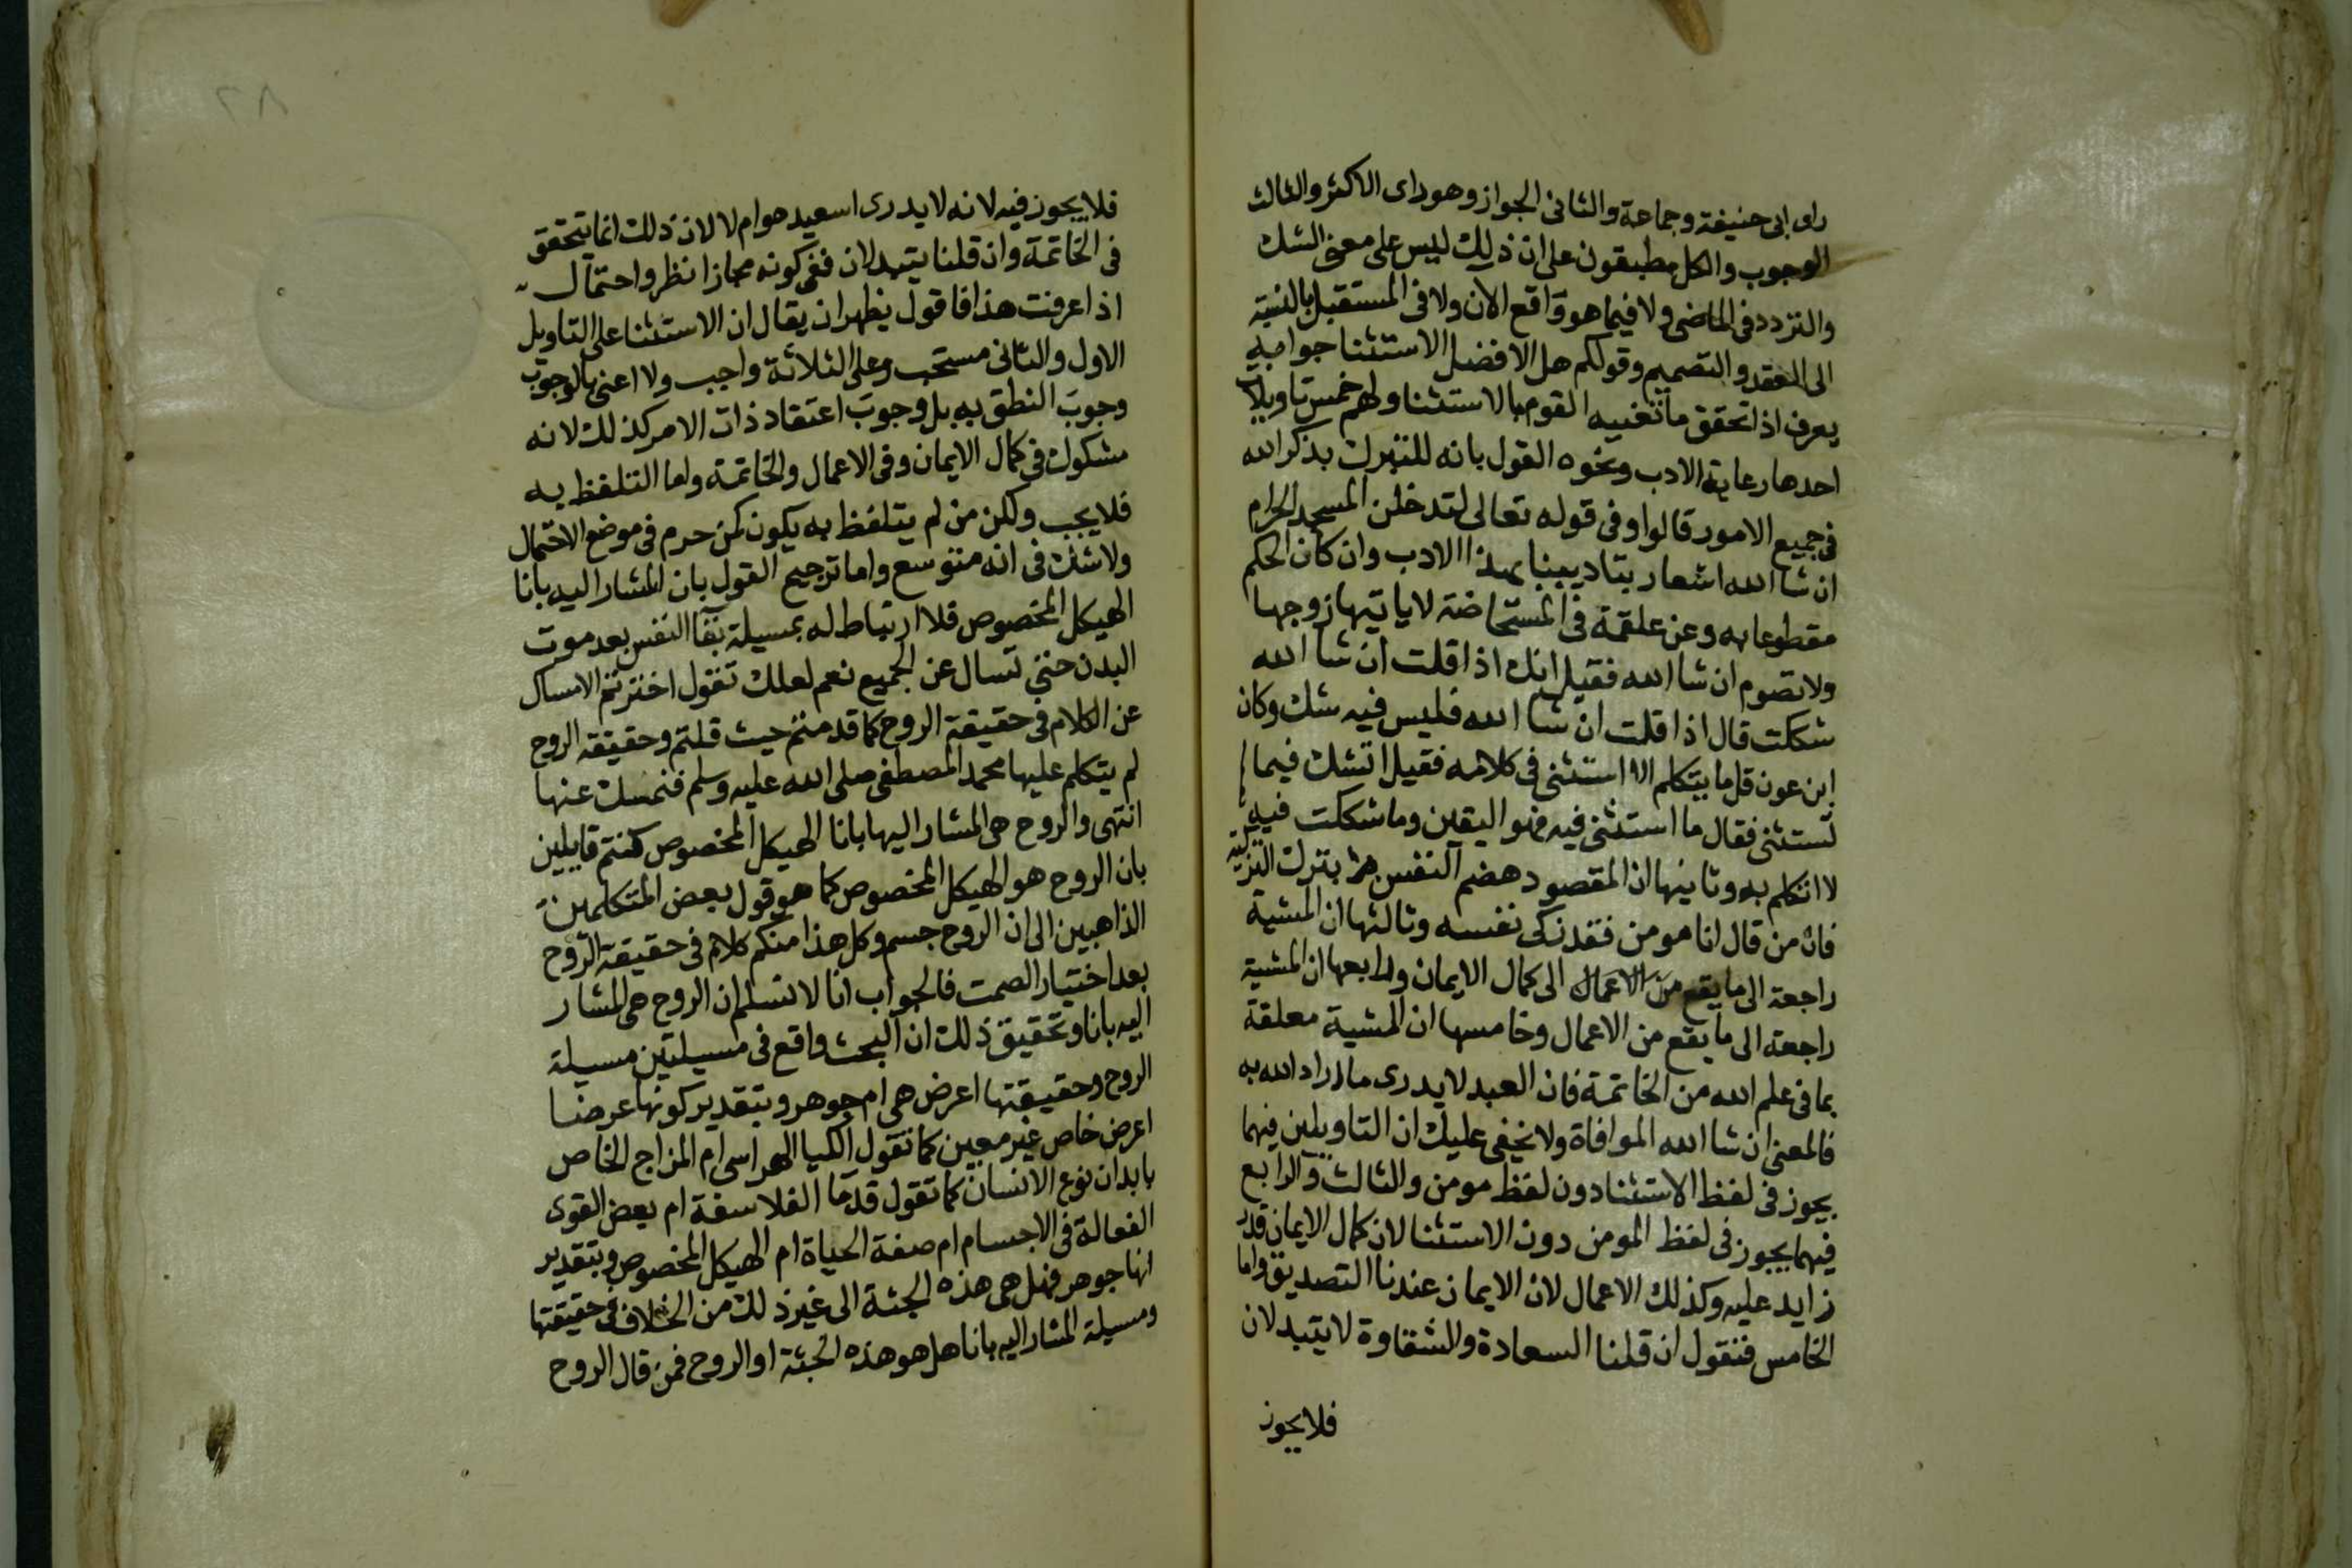 راى ابى حنيفة وجماعة والثانى الجواز وهوراى الاكثر والثالث
الوجوب والكل مطبقون على ان ذلك ليس على معنى الشك
والتردد فى الماضى ولا فيما هو واقع الان ولا فى المستقبل بالنسبة
الى العقد والتصميم وقولكم هل الافضل الاستثنا جوابه
يعرف اذا تحقق ما تغنيه القوم بالاستثنا ولهم خمس تاويلات
احدها رعاية الادب ونحوه القول بانه للتبرك بذكر الله
فى جميع الامور قالوا وفى قوله تعالى لتدخلن المسجد الحرام
ان شا الله اشعار بتاديبنا بهذا الادب وان كان الحكم
مقطوعا به وعن علقمة فى المستحاضة لا ياتيها زوجها
ولا تصوم ان شا الله فقيل انك اذا قلت ان شا الله
شككت قال اذا قلت ان شا الله فليس فيه شك وكان
ابن عون قل ما يتكلم الا استثنى فى كلامه فقيل اتشك فيما
تستثنى فقال ما استثنى فيه فهو اليقين وما شككت فيه
لا اتكلم به وثانيها ان المقصود هضم النفس بترك التزكية
فان من قال انا مومن فقد زكى نفسه وثالثها ان المشية
راجعة الى ما يقع من الاعمال الى كمال الايمان ورابعها ان المشية
راجعة الى ما يقع من الاعمال وخامسها ان المشية معلقة
بما فى علم الله من الخاتمة فان العبد لا يدرى ما اراد الله به
فالمعنى ان شا الله الموافاة ولا يخفى عليك ان التاويلين فيهما
يجوز فى لفظ الاستثنا دون لفظ مومن والثالث والرابع
فيهما يجوز فى لفظ المومن دون الاستثنا لان كمال الايمان قدر
زايد عليه وكذلك الاعمال لان الايمان عندنا التصديق واما
الخامس فنقول ان قلنا السعادة والشقاوة لا يتبدلان
فلا يجوز
٢٨
فلا يجوز فيه لانه لا يدرى اسعيد هو ام لا لان ذلك انما يتحقق
فى الخاتمة وان قلنا يتبدلان ففى كونه مجازا نظر واحتمال
اذا عرفت هذا فاقول يظهر ان يقال ان الاستثنا على التاويل
الاول والثانى مستحب وعلى الثلاثة واجب ولا اعنى بالوجوب
وجوب النطق به بل وجوب اعتقاد ذات الامر كذلك لانه
مشكوك فى كمال الايمان وفى الاعمال والخاتمة واما التلفظ به
فلا يجب ولكن من لم يتلفظ به يكون كمن حرم فى موضع الاحتمال
ولا شك فى انه متوسع واما ترجيح القول بان المشار اليه بانا
الهيكل المخصوص فلا ارتباط له بمسيلة بقا النفس بعد موت
البدن حتى تسال عن الجميع نعم لعلك تقول اخترتم الامساك
عن الكلام فى حقيقة الروح كما قدمتم حيث قلتم وحقيقة الروح
لم يتكلم عليها محمد المصطفى صلى الله عليه وسلم فنمسك عنها
انتهى والروح هى المشار اليها بانا الهيكل المخصوص كنتم قايلين
بان الروح هو الهيكل المخصوص كما هو قول بعض المتكلمين
الذاهبين الى ان الروح جسم وكل هذا منكم كلام فى حقيقة الروح
بعد اختيار الصمت فالجواب انا لا نسلم ان الروح هى المشار
اليه بانا وتحقيق ذلك ان البحث واقع فى مسيلتين مسيلة
الروح وحقيقتها اعرض هى ام جوهر وبتقدير كونها عرضا
اعرض خاص غير معين كما تقول الكيا الهراسى ام المزاج الخاص
بابدان نوع الانسان كما تقول قدما الفلاسفة ام بعض القوى
الفعالة فى الاجسام ام صفة الحياة ام الهيكل المخصوص وبتقدير
انها جوهر فهل هى هذه الجثة الى غير ذلك من الخلاف فى حقيقتها
ومسيلة المشار اليه بانا هل هو هذه الجثة او الروح فمن قال الروح